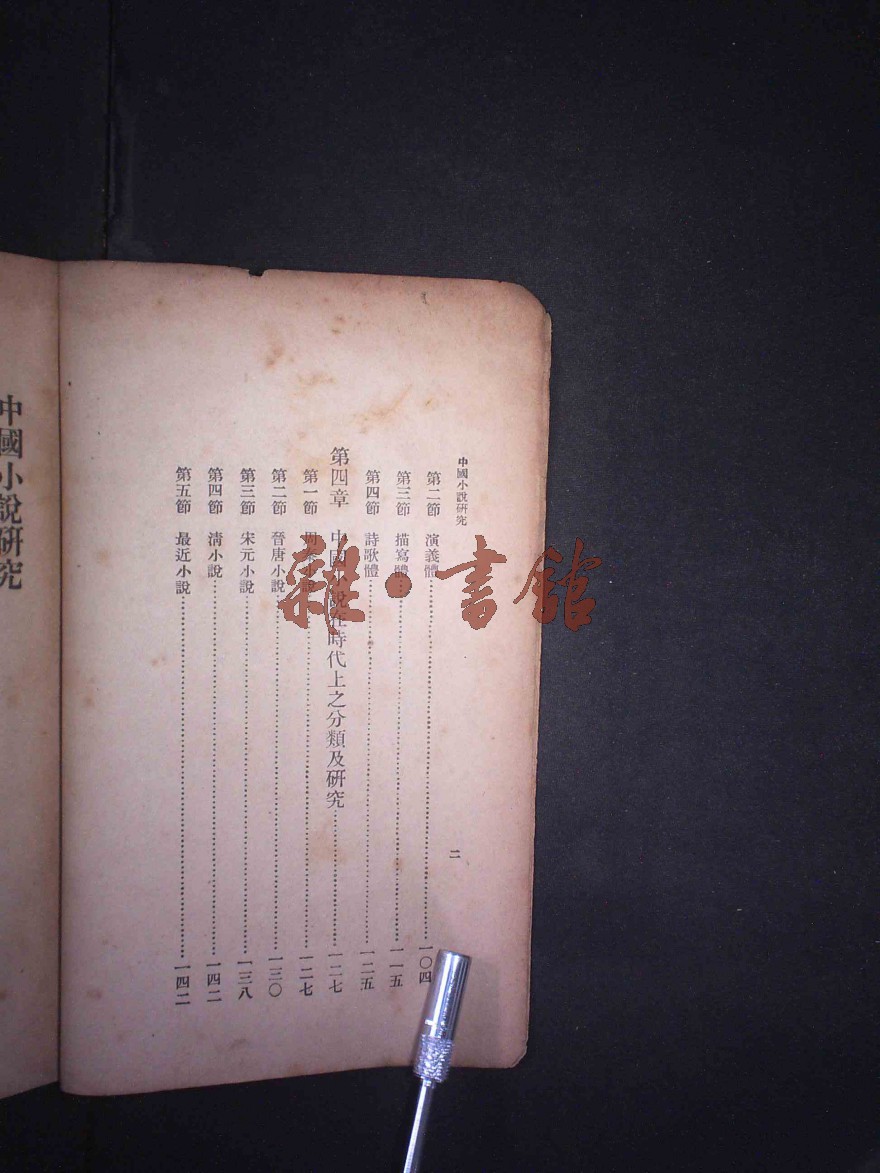 中國小說研究
二
第二節 演義體 一〇四
第三節 描寫體 一一五
第四節 詩歌體 一二五
第四章 中國小說在時代上之分類及研究 一二七
第一節 周秦小說 一二七
第二節 晉唐小說 一三〇
第三節 宋元小說 一三八
第四節 清小說 一四二
第五節 最近小說 一四二
中國小說研究
雜·書館